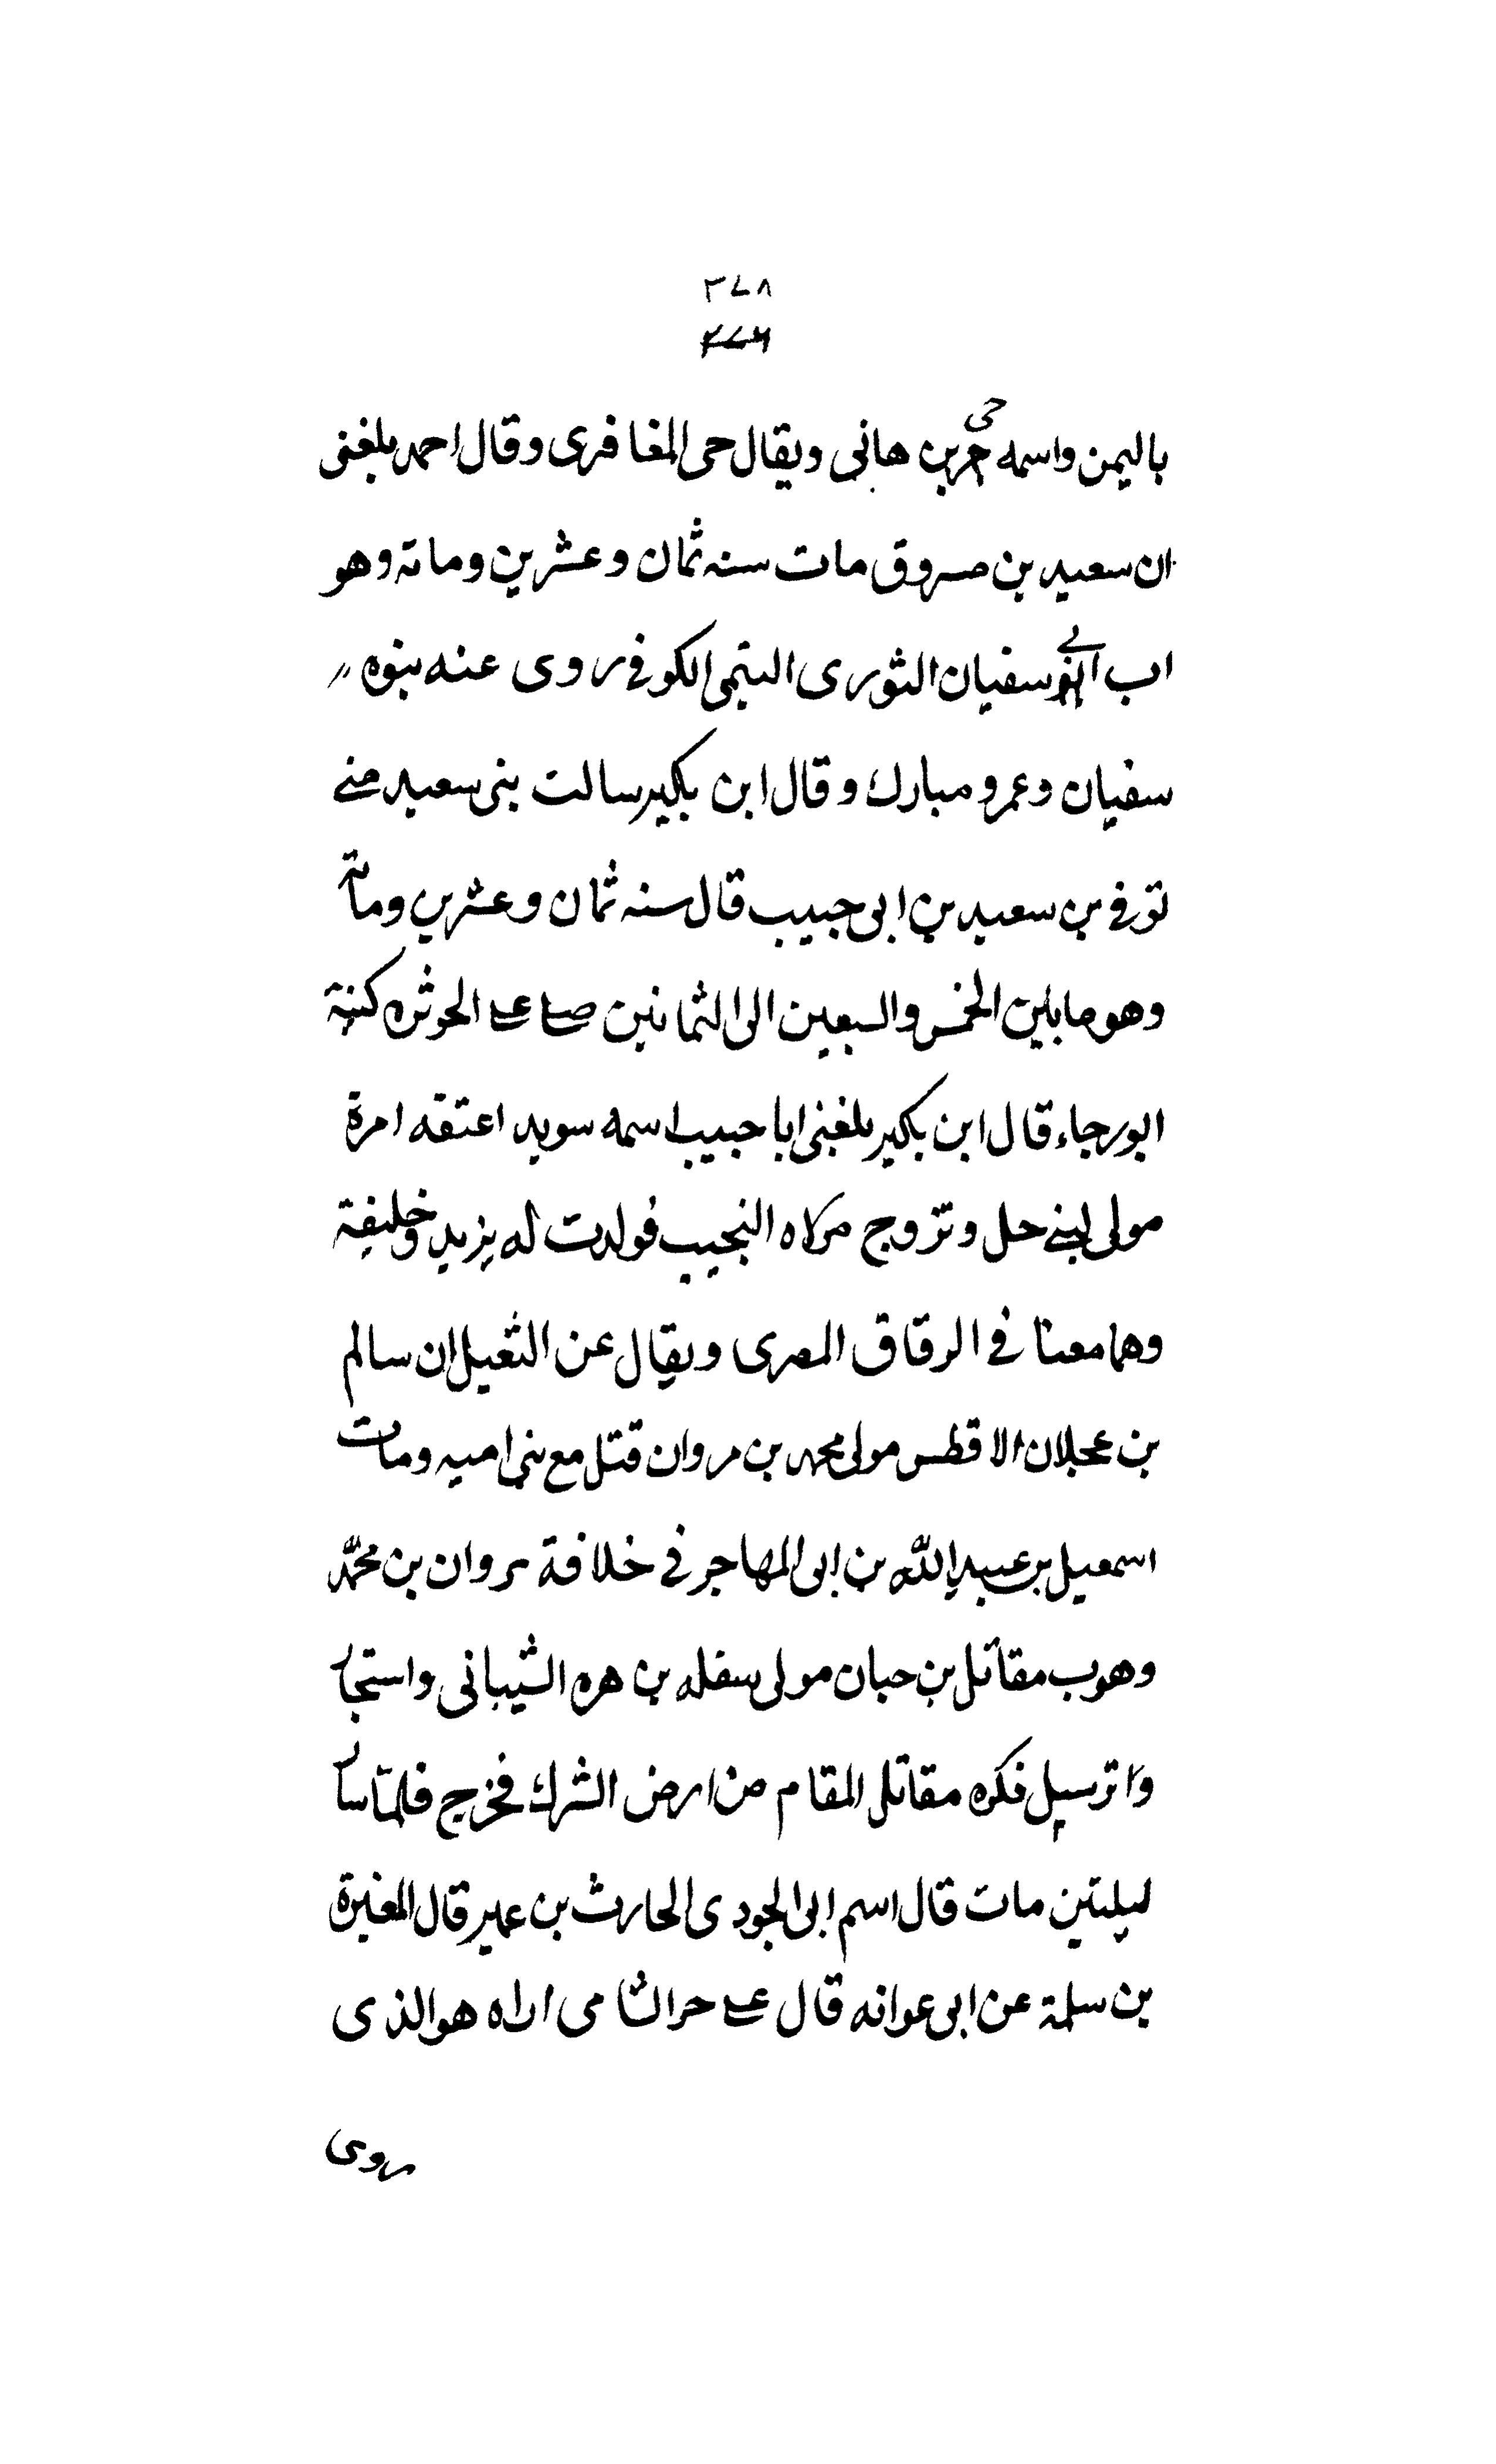 ٣٧٨
باليمن واسمه حى بن هانى ويقال حى المغافرى وقال احمد بلغنى
ان سعيد بن مسروق مات سنه ثمان وعشرين ومائة وهو
اب ابى سفيان الثورى التيمى الكوفى روى عنه بنوه
سفيان وعمرو مبارك وقال ابن بكير سالت بنى سعيد متى
توفى بن سعيد بن ابى حبيب قال سنه ثمان وعشرين ومائة
وهو مابين الخمس والسبعين الى الثمانين على الحوثره كنية
ابورجاء قال ابن بكير بلغنى ابا حبيب اسمه سويد اعتقه امرة
مولى لبنى حل وتزوج مولاه النجيب فولدت له يزيد وخليفة
وهما معنا فى الرقاق المصرى ويقال عن النفيل ان سالم
بن عجلان الاقطس مولى محمد بن مروان قتل مع بنى اميه ومات
اسمعيل بن عبيد الله بن ابى المهاجر فى خلافة مروان بن محمد
وهوب مقاتل بن حبان مولى سفله بن هره الشيبانى واستجار
وا ترسيل فكره مقاتل المقام من ارض الشرك فخرج فلما سار
ليلتين مات قال اسم ابى الجودى الحارث بن عمير قال المغيرة
بن سلمة عن ابى عوانه قال على حر الشامى اراه هو الذى
روى